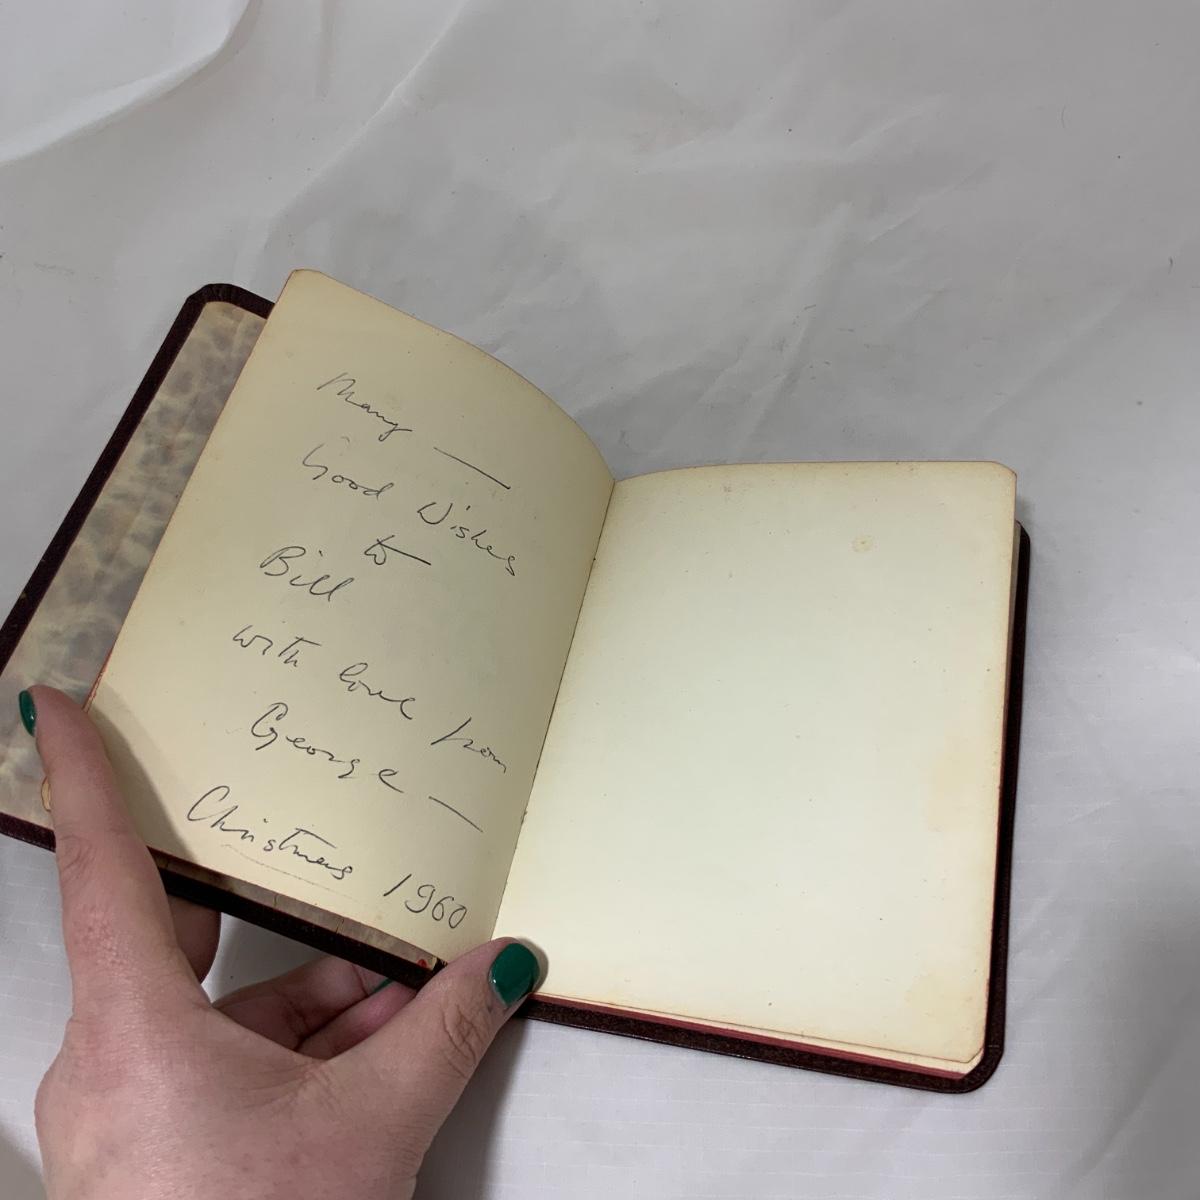 Many —
Good Wishes
to
Bill
with love from
George —
Christmas 1960